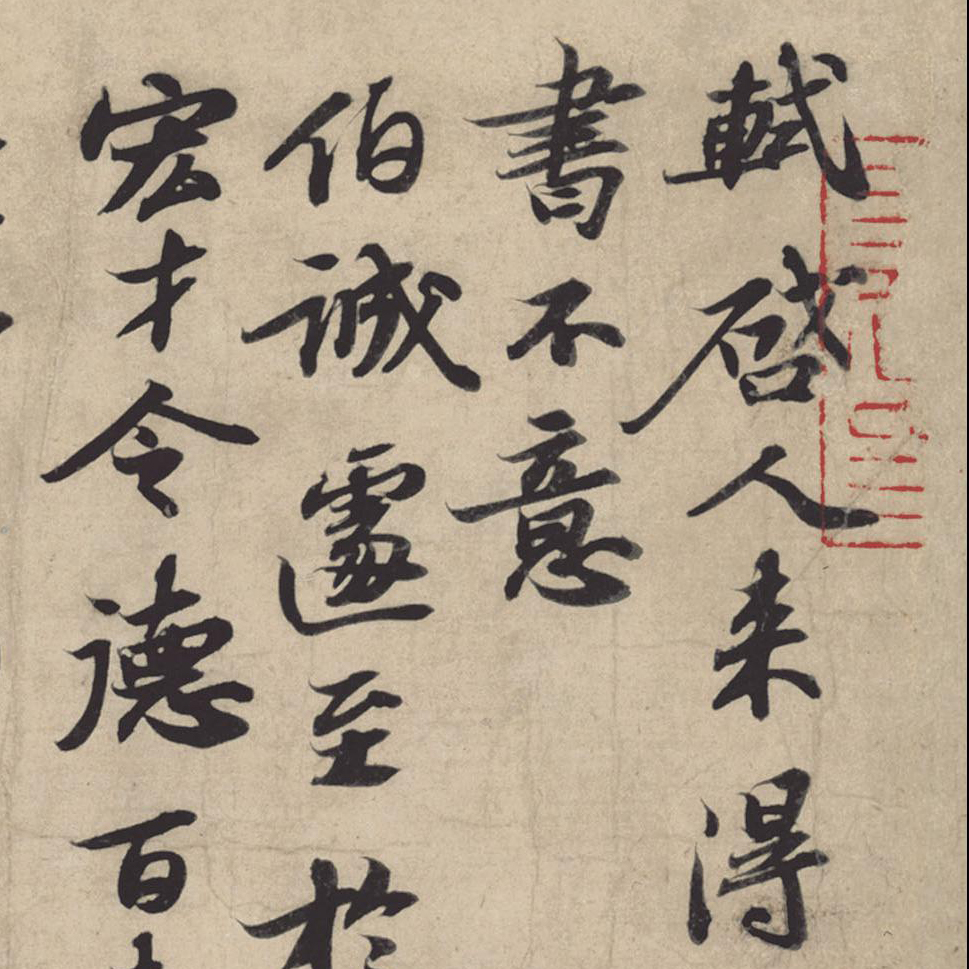 軾啓人来得
書不意
伯誠遽至於
宏才令德百